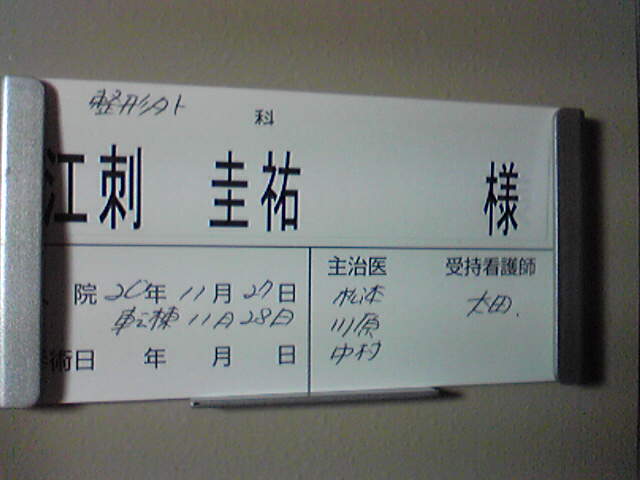 整形外 科
江刺 圭祐 様
院 20年 11月 27日
転棟 11月 28日
術日 年 月 日
主治医 受持看護師
松本 太田.
川原
中村